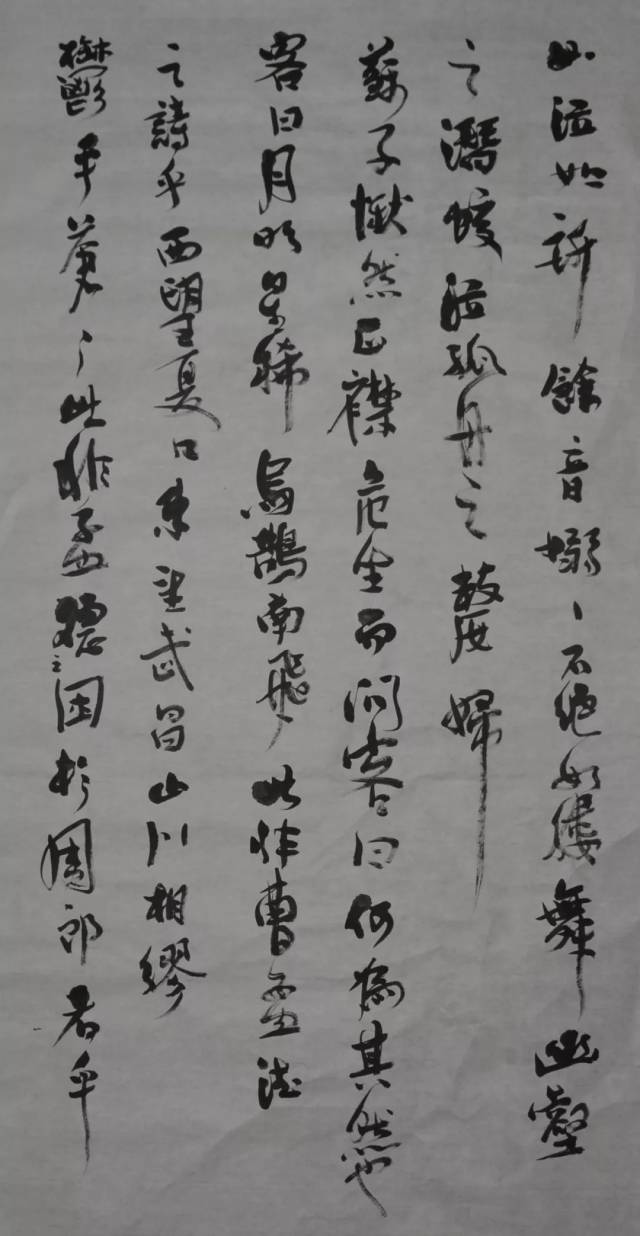 如泣如訴餘音嫋〻不絶如縷舞幽壑
之潛蛟泣孤舟之嫠婦
蘇子愀然正襟危坐而問客曰何為其然也
客曰月明星稀烏鵲南飛此非曹孟德
之詩乎西望夏口東望武昌山川相繆
鬱乎蒼〻此非孟德之困於周郎者乎